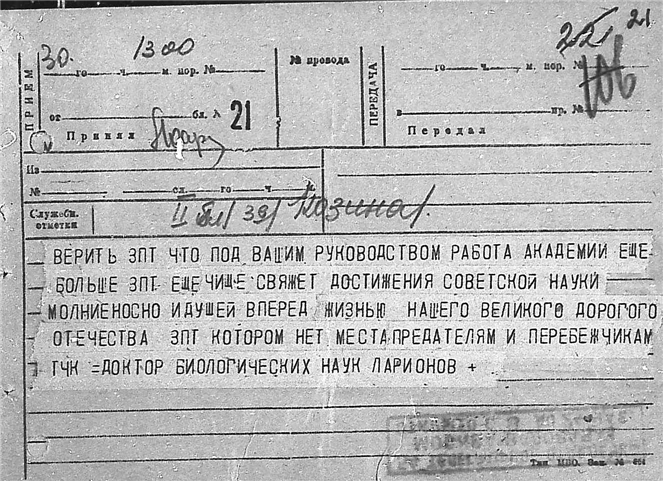 21
30. 1300
ПРИЕМ
го ч. м. пор. №
№ провода
ПЕРЕДАЧА
го ч. м. пор. №
от бл. № 21
в пр. №
Принял
Передал
Из
№ сл. го ч. м.
Служебн. отметки
Козина
ВЕРИТЬ ЗПТ ЧТО ПОД ВАШИМ РУКОВОДСТВОМ РАБОТА АКАДЕМИИ ЕЩЕ
БОЛЬШЕ ЗПТ ЕЩЕ ЧИЩЕ СВЯЖЕТ ДОСТИЖЕНИЯ СОВЕТСКОЙ НАУКИ
МОЛНИЕНОСНО ИДУШЕЙ ВПЕРЕД ЖИЗНЬЮ НАШЕГО ВЕЛИКОГО ДОРОГОГО
ОТЕЧЕСТВА ЗПТ КОТОРОМ НЕТ МЕСТА ПРЕДАТЕЛЯМ И ПЕРЕБЕЖЧИКАМ
ТЧК =ДОКТОР БИОЛОГИЧЕСКИХ НАУК ЛАРИОНОВ +
Тип. МПО. Зак. №